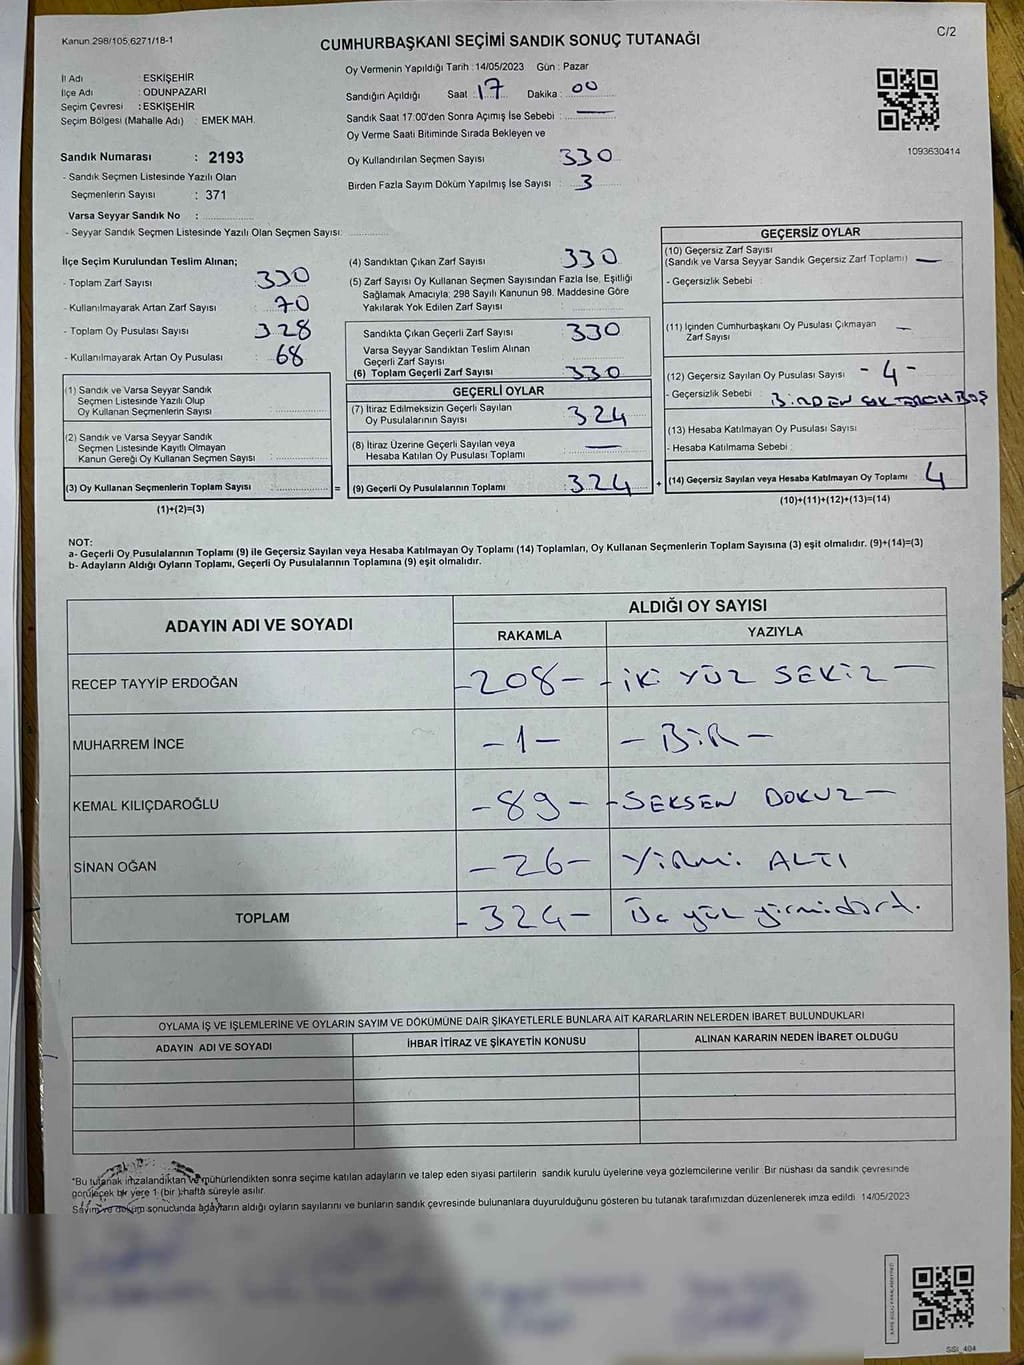 Kanun 298/105,6271/18-1
CUMHURBAŞKANI SEÇİMİ SANDIK SONUÇ TUTANAĞI
C/2
İl Adı : ESKİŞEHİR
İlçe Adı : ODUNPAZARI
Seçim Çevresi : ESKİŞEHİR
Seçim Bölgesi (Mahalle Adı) : EMEK MAH.
Sandık Numarası : 2193
- Sandık Seçmen Listesinde Yazılı Olan
Seçmenlerin Sayısı : 371
Varsa Seyyar Sandık No :
- Seyyar Sandık Seçmen Listesinde Yazılı Olan Seçmen Sayısı:
Oy Vermenin Yapıldığı Tarih : 14/05/2023 Gün : Pazar
Sandığın Açıldığı Saat : 17 Dakika : 00
Sandık Saat 17.00'den Sonra Açımış İse Sebebi : —
Oy Verme Saati Bitiminde Sırada Bekleyen ve
Oy Kullandırılan Seçmen Sayısı 330
Birden Fazla Sayım Döküm Yapılmış İse Sayısı : 3
1093630414
İlçe Seçim Kurulundan Teslim Alınan;
- Toplam Zarf Sayısı : 330
- Kullanılmayarak Artan Zarf Sayısı : 70
- Toplam Oy Pusulası Sayısı : 328
- Kullanılmayarak Artan Oy Pusulası : 68
(1) Sandık ve Varsa Seyyar Sandık
Seçmen Listesinde Yazılı Olup
Oy Kullanan Seçmenlerin Sayısı :
(2) Sandık ve Varsa Seyyar Sandık
Seçmen Listesinde Kayıtlı Olmayan
Kanun Gereği Oy Kullanan Seçmen Sayısı :
(3) Oy Kullanan Seçmenlerin Toplam Sayısı =
(1)+(2)=(3)
(4) Sandıktan Çıkan Zarf Sayısı : 330
(5) Zarf Sayısı Oy Kullanan Seçmen Sayısından Fazla İse, Eşitliği
Sağlamak Amacıyla; 298 Sayılı Kanunun 98. Maddesine Göre
Yakılarak Yok Edilen Zarf Sayısı :
Sandıkta Çıkan Geçerli Zarf Sayısı : 330
Varsa Seyyar Sandıktan Teslim Alınan
Geçerli Zarf Sayısı
(6) Toplam Geçerli Zarf Sayısı : 330
GEÇERLİ OYLAR
(7) İtiraz Edilmeksizin Geçerli Sayılan
Oy Pusulalarının Sayısı : 324
(8) İtiraz Üzerine Geçerli Sayılan veya
Hesaba Katılan Oy Pusulası Toplamı : —
(9) Geçerli Oy Pusulalarının Toplamı : 324 +
GEÇERSİZ OYLAR
(10) Geçersiz Zarf Sayısı
(Sandık ve Varsa Seyyar Sandık Geçersiz Zarf Toplamı) —
- Geçersizlik Sebebi :
(11) İçinden Cumhurbaşkanı Oy Pusulası Çıkmayan
Zarf Sayısı —
(12) Geçersiz Sayılan Oy Pusulası Sayısı - 4 -
- Geçersizlik Sebebi : BİRDEN
(13) Hesaba Katılmayan Oy Pusulası Sayısı
- Hesaba Katılmama Sebebi :
(14) Geçersiz Sayılan veya Hesaba Katılmayan Oy Toplamı 4
(10)+(11)+(12)+(13)=(14)
NOT:
a- Geçerli Oy Pusulalarının Toplamı (9) ile Geçersiz Sayılan veya Hesaba Katılmayan Oy Toplamı (14) Toplamları, Oy Kullanan Seçmenlerin Toplam Sayısına (3) eşit olmalıdır. (9)+(14)=(3)
b- Adayların Aldığı Oyların Toplamı, Geçerli Oy Pusulalarının Toplamına (9) eşit olmalıdır.
ADAYIN ADI VE SOYADI
ALDIĞI OY SAYISI
RAKAMLA YAZIYLA
RECEP TAYYİP ERDOĞAN -208- - İKİ YÜZ SEKİZ -
MUHARREM İNCE -1- - BİR -
KEMAL KILIÇDAROĞLU -89- - SEKSEN DOKUZ -
SİNAN OĞAN -26- YİRMİ ALTI
TOPLAM -324- Üç yüz yirmidört.
OYLAMA İŞ VE İŞLEMLERİNE VE OYLARIN SAYIM VE DÖKÜMÜNE DAİR ŞİKAYETLERLE BUNLARA AİT KARARLARIN NELERDEN İBARET BULUNDUKLARI
ADAYIN ADI VE SOYADI İHBAR İTİRAZ VE ŞİKAYETİN KONUSU ALINAN KARARIN NEDEN İBARET OLDUĞU
*Bu tutanak imzalandıktan ve mühürlendikten sonra seçime katılan adayların ve talep eden siyasi partilerin sandık kurulu üyelerine veya gözlemcilerine verilir. Bir nüshası da sandık çevresinde
görülecek bir yere 1 (bir )hafta süreyle asılır.
Sayım ve döküm sonucunda adayların aldığı oyların sayılarını ve bunların sandık çevresinde bulunanlara duyurulduğunu gösteren bu tutanak tarafımızdan düzenlenerek imza edildi. 14/05/2023
SSI_404